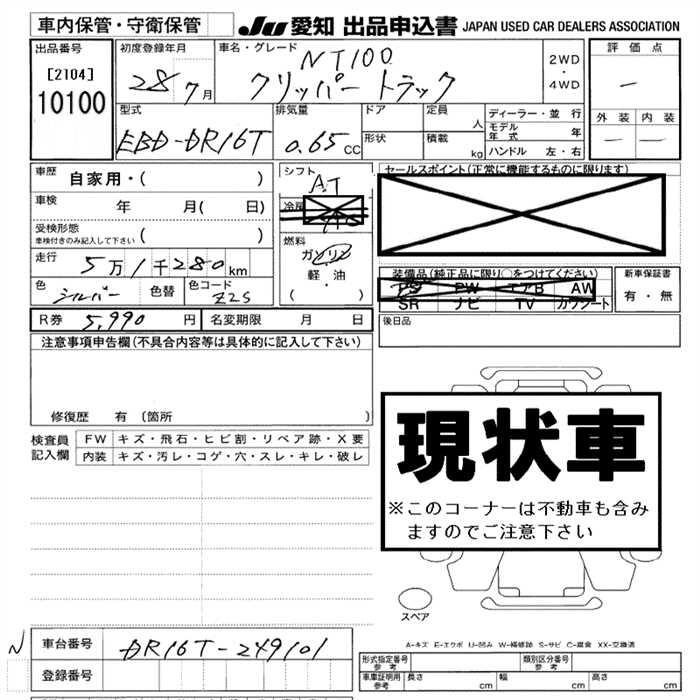 車内保管・守衛保管
JU 愛知 出品申込書 JAPAN USED CAR DEALERS ASSOCIATION
出品番号
[2104]
10100
初度登録年月
28年 7月
車名・グレード
NT100
クリッパートラック
2WD
・
4WD
評価点
―
外装 内装
― ―
型式
EBD-DR16T
排気量
0.65 CC
ドア
形状
定員
人
積載
kg
ディーラー・並 行
モデル年式 年
ハンドル 左・右
車歴
自家用・( )
車検
年 月( 日)
受検形態
車検付きのみ記入して下さい ( )
走行
5万1千280km
色
シルバー
色替
色コード
Z2S
シフト
AT
冷房
燃料
ガソリン
軽 油
( ・ )
セールスポイント(正常に機能するものに限ります)
装備品(純正品に限り○をつけてください)
PS PW エアB AW
SR ナビ TV カワシート
新車保証書
有・無
R券 5,990 円
名変期限 月 日
後日品
注意事項申告欄(不具合内容等は具体的に記入して下さい)
修復歴 有〔箇所 〕
検査員
記入欄
FW キズ・飛石・ヒビ割・リペア跡・X要
内装 キズ・汚レ・コゲ・穴・スレ・キレ・破レ
現状車
※このコーナーは不動車も含み
ますのでご注意下さい
スペア
A-キズ E-エクボ U-凹み W-補修跡 S-サビ C-腐食 XX-交換済
N
車台番号 DR16T-249101
登録番号
形式指定番号
参考
類別区分番号
参考
車庫証明用
参考
長さ cm
幅 cm
高さ cm